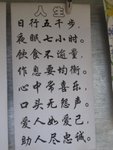 人生
日行五千步，
夜眠七小时。
饮食不逾量，
作息要均衡。
心中常喜乐，
口头无怨声。
爱人如爱己，
助人尽忠诚。